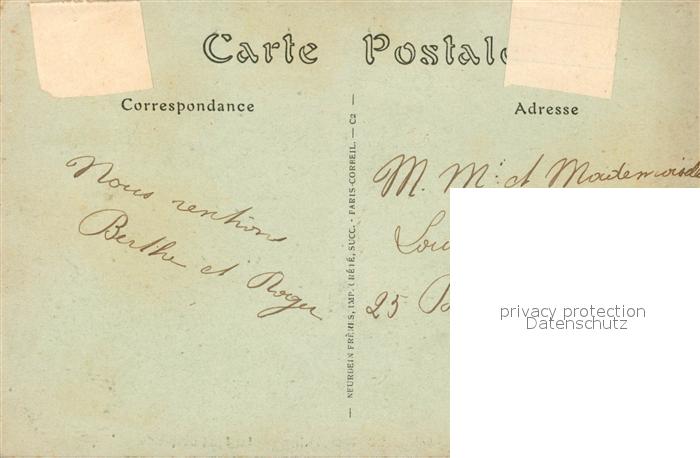 Carte Postale
Correspondance
Adresse
Nous rentrons
Berthe et Roger
NEURDEIN FRÈRES, IMP. CRÉTÉ, SUCC. - PARIS-CORBEIL. — C2 —
M. Mme et Mademoiselle
Lou
25 B
privacy protection
Datenschutz